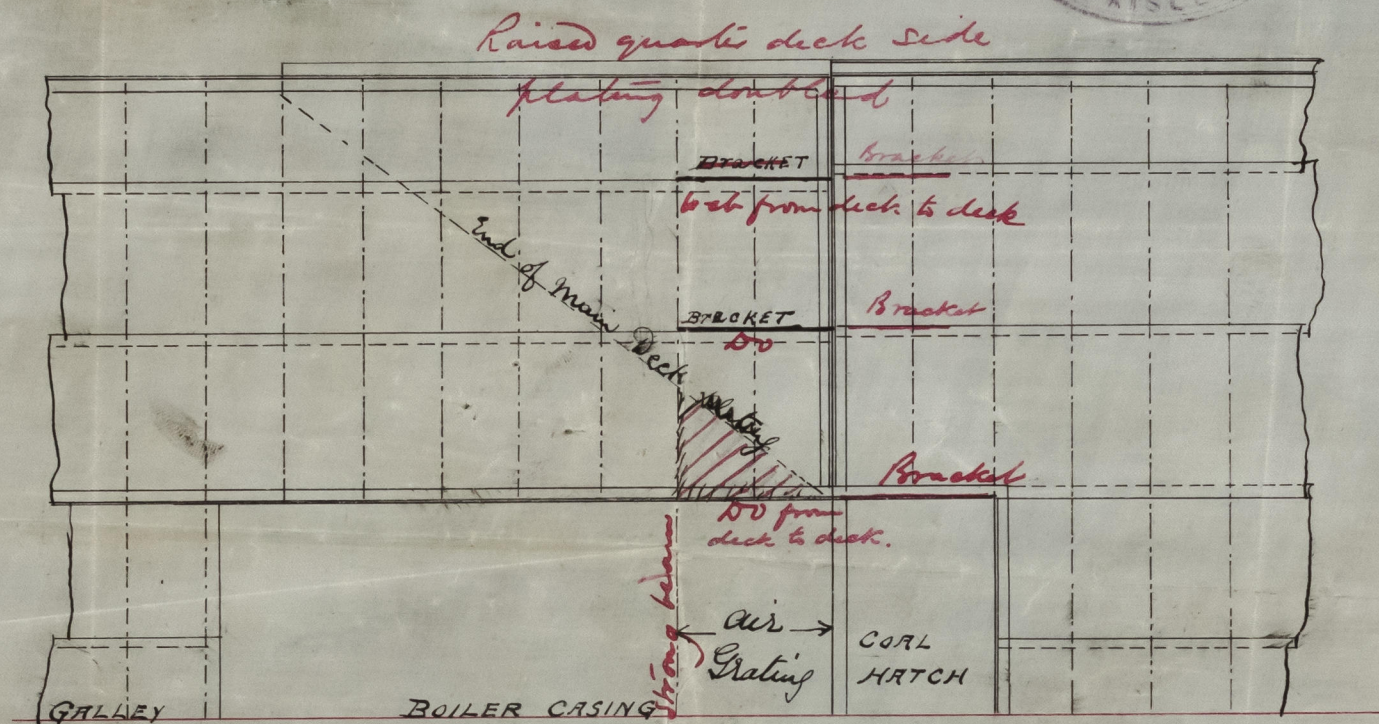 Raised quarter deck side
plating doubled
BRACKET
Bracket
Web from deck to deck
End of Main Deck Plating
BRACKET
Do
Bracket
Bracket
Do from
deck to deck.
Strong beam
Air
Grating
COAL
HATCH
GALLEY
BOILER CASING